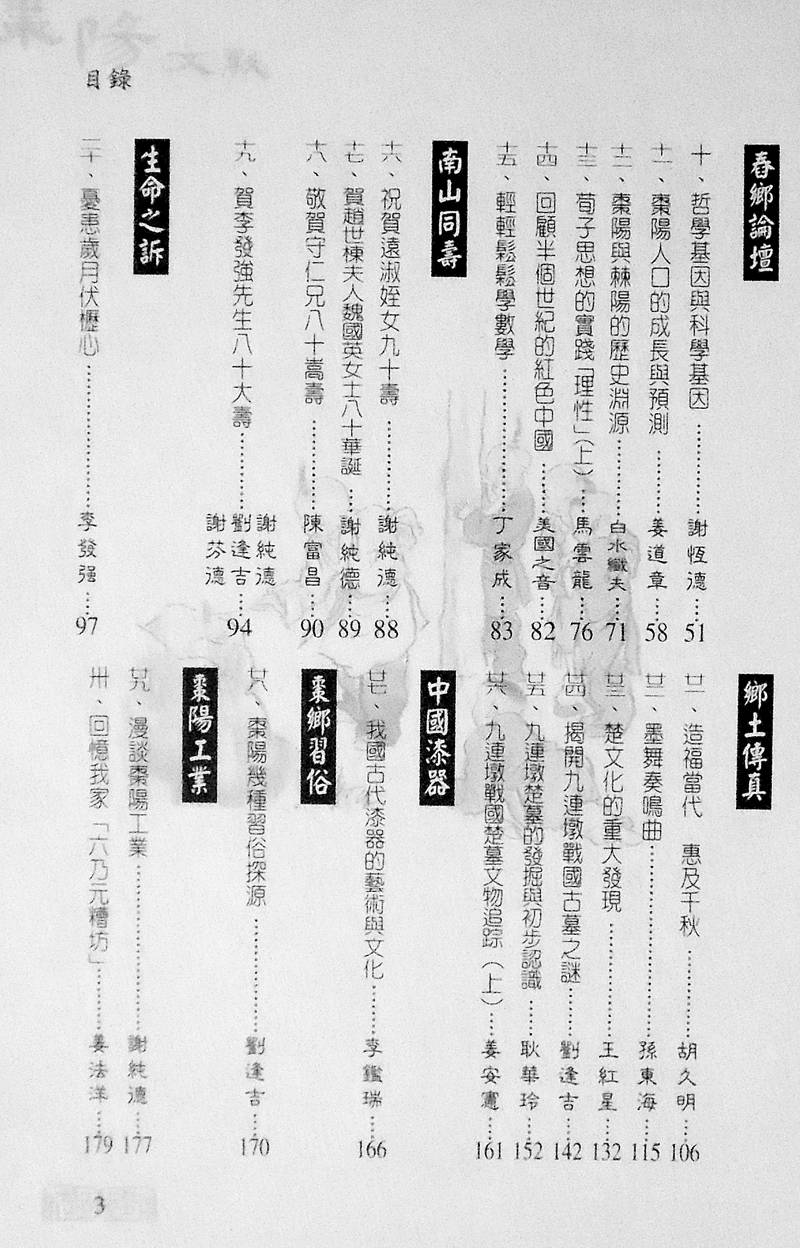 目錄
春鄉論壇
十、哲學基因與科學基因………謝恆德…51
十一、棗陽人口的成長與預測……姜道章…58
十二、棗陽與棘陽的歷史淵源………白水鐵夫…71
十三、荀子思想的實踐「理性」(上)…馬雲龍…76
十四、回顧半個世紀的紅色中國…美國之音…82
十五、輕輕鬆鬆學數學…………丁家成…83
南山同壽
十六、祝賀遠淑姪女九十壽………謝純德…88
十七、賀趙世棟夫人魏國英女士八十華誕…謝純德…89
十八、敬賀守仁兄八十嵩壽………陳富昌…90
十九、賀李發強先生八十大壽………謝純德 劉逢吉 謝芬德…94
生命之訴
二十、憂患歲月伏櫪心…………李發強…97
鄉土傳真
廿一、造福當代 惠及千秋………胡久明…106
廿二、墨舞奏鳴曲…………孫東海…115
廿三、楚文化的重大發現………王紅星…132
廿四、揭開九連墩戰國古墓之謎……劉逢吉…142
廿五、九連墩楚墓的發掘與初步認識…耿華玲…152
廿六、九連墩戰國楚墓文物追踪(上)…姜安憲…161
中國漆器
廿七、我國古代漆器的藝術與文化……李鑑瑞…166
棗鄉習俗
廿八、棗陽幾種習俗探源…………劉逢吉…170
棗陽工業
廿九、漫談棗陽工業…………謝純德…177
卅、回憶我家「六乃元糟坊」………姜法洋…179
3